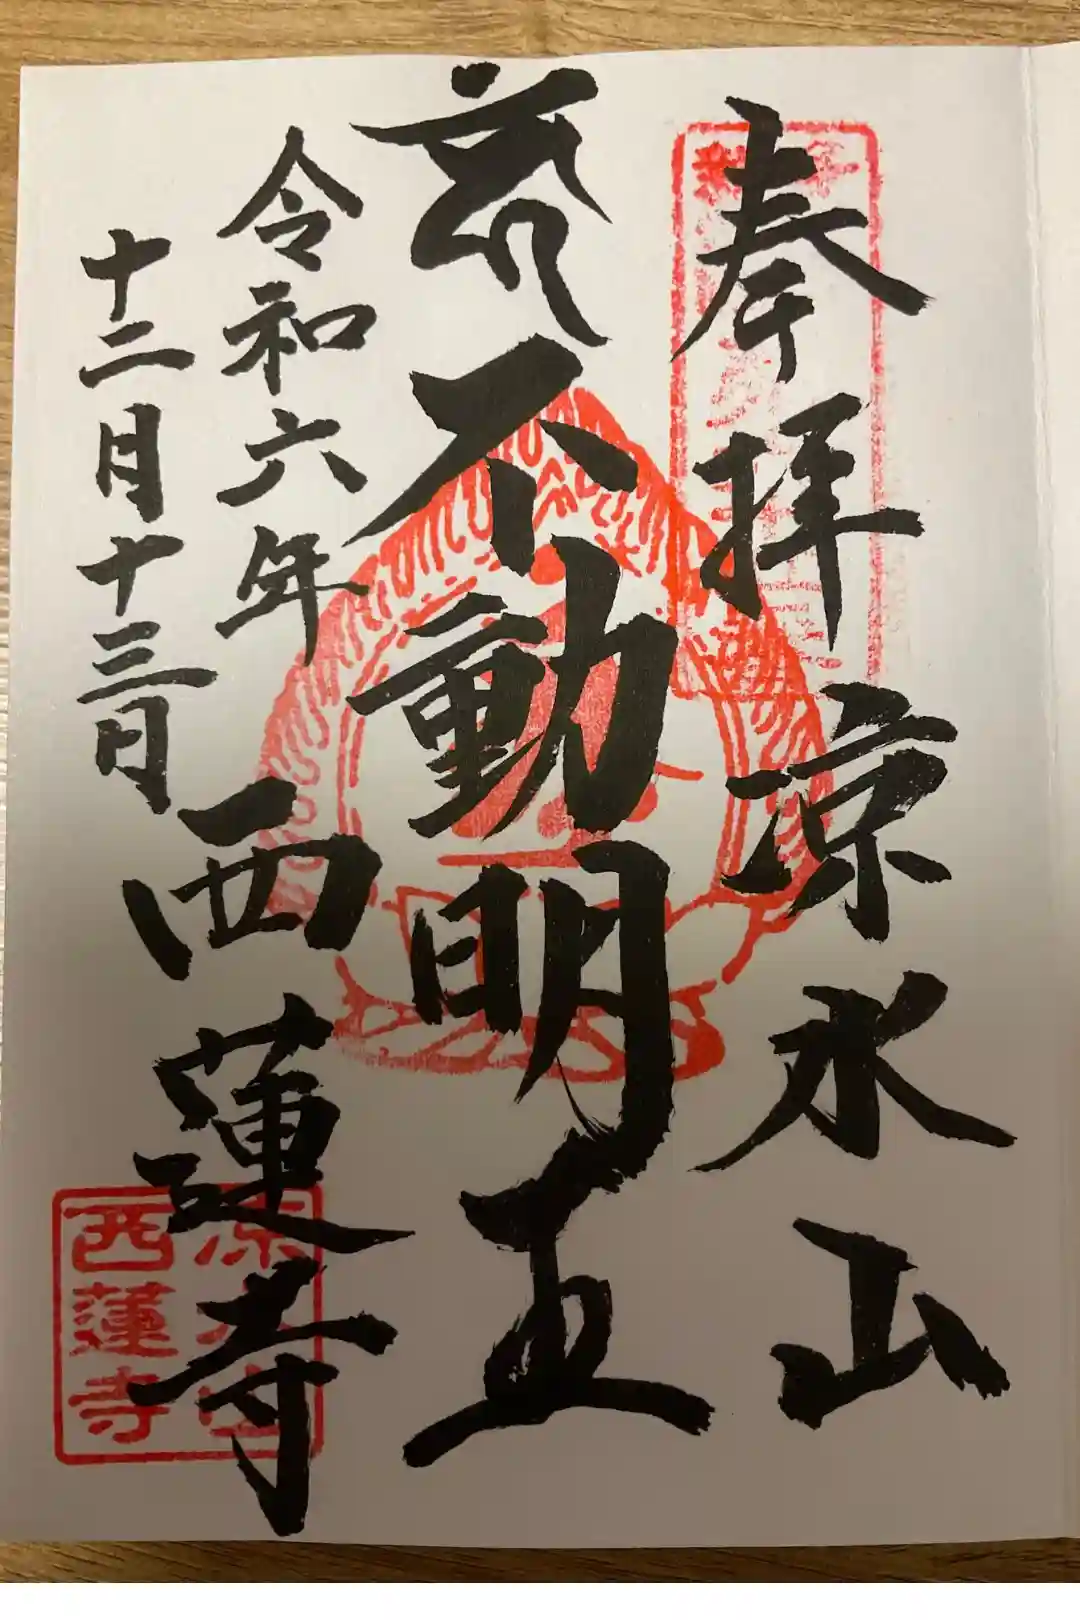 奉拝 凉水山
不動明王
令和六年
十二月十三日
西蓮寺
凉水山
西蓮寺